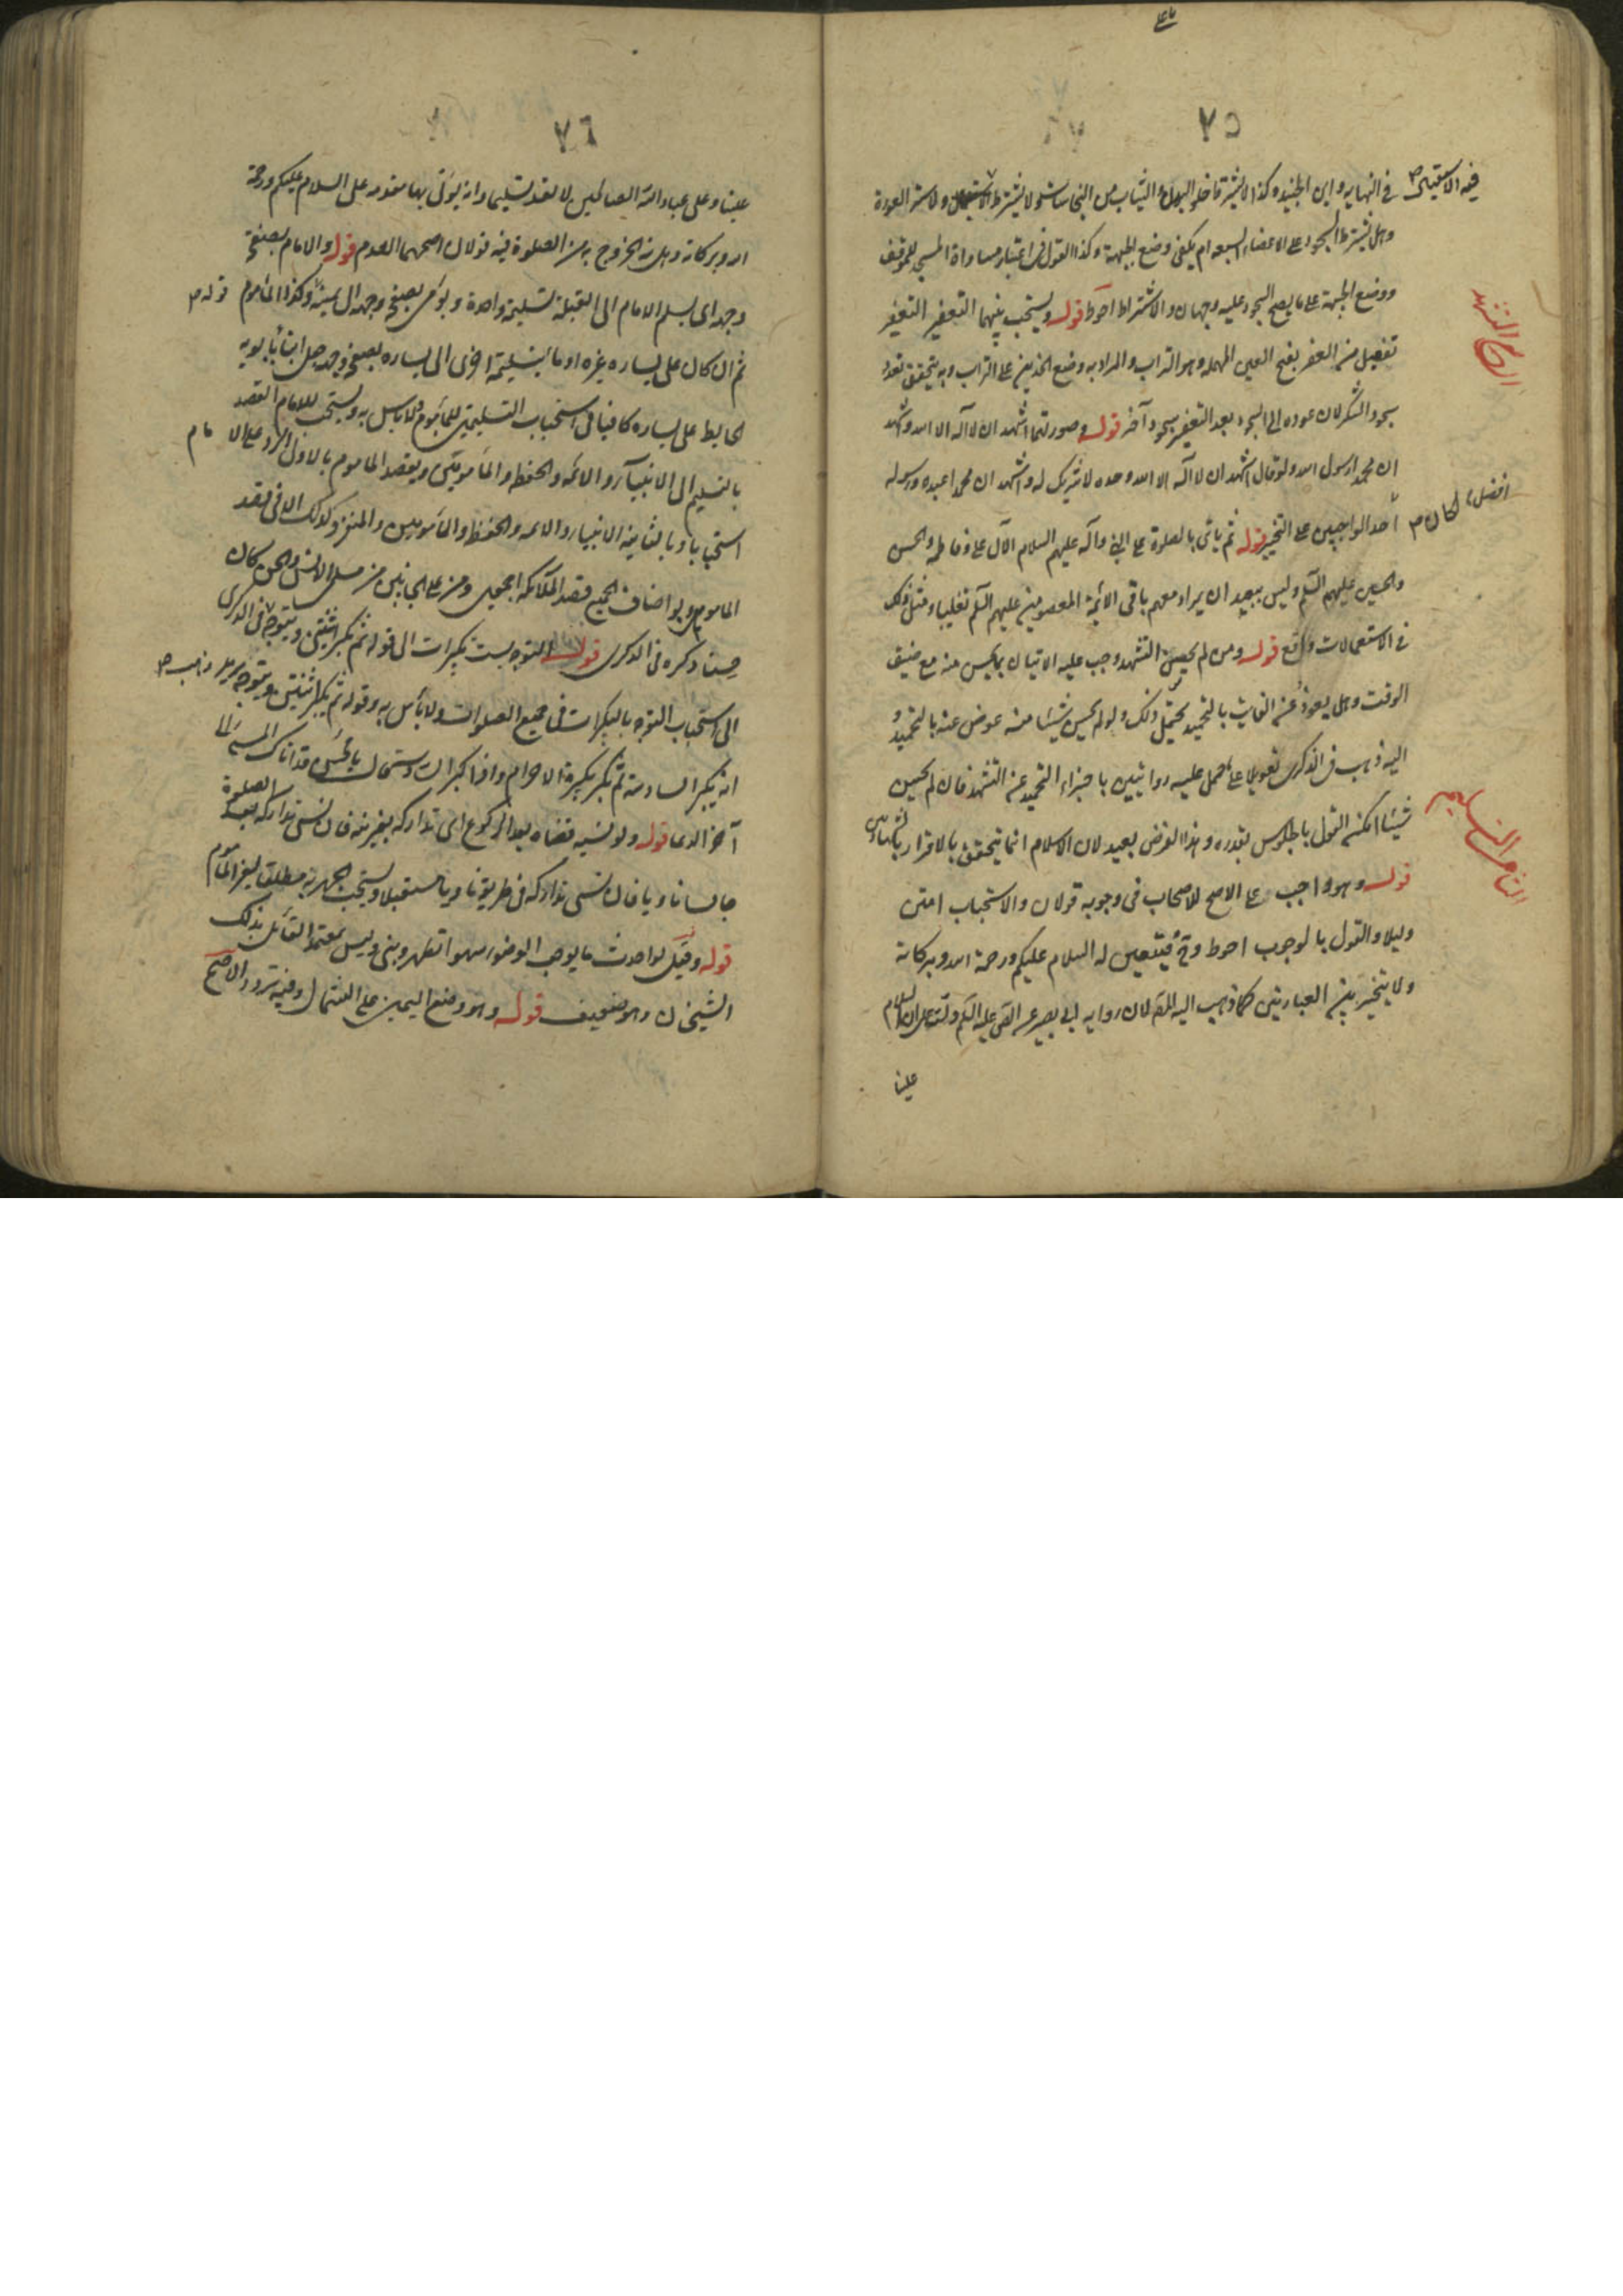 ٧٥
في النهايه وابن الجنيد وكذا لا يشترط خلو البدن والثياب من النجاسات ولا يشترط الاستقبال ولا ستر العورة
فيه الاستقبال صح
وهل يشترط السجود على الاعضاء السبعه ام يكفي وضع الجبهة وكذا القول في اعتبار مساواة المسجد للموقف
ووضع الجبهة على ما يصح السجود عليه وجهان والاشتراط احوط قوله ويستحب بينهما التعفير التعفير
تفعيل من العفر بفتح العين المهمله وهو التراب والمراد به وضع الخدين على التراب وبه يتحقق تعدد
الرابع التشهد
سجود الشكر لان عوده الى السجود بعد التعفير سجود آخر قوله وصورتهما اشهد ان لا اله الا الله واشهد
ان محمدا رسول الله ولو قال اشهد ان لا اله الا الله وحده لا شريك له واشهد ان محمدا عبده ورسوله
لكان افضل
احد الواجبين على التخيير قوله ثم ياتي بالصلوة على النبي وآله عليهم السلام الآل علي وفاطمه والحسن
والحسين عليهم السلم وليس ببعيد ان يراد معهم باقي الائمة المعصومين عليهم السلم تغليبا ومثل ذلك
في الاستعمالات واقع قوله ومن لم يحسن التشهد وجب عليه الاتيان بما يحسن منه مع ضيق
الوقت وهل يعوض عن الفائت بالتحميد يحتمل ذلك ولو لم يحسن شيئا منه عوض عنه بالتحميد و
اليه ذهب في الذكرى تعويلا على حمل عليه روايتين باجزاء التحميد عن التشهد فان لم يحسن
شيئا امكن القول بالجلوس بقدره وهذا الفرض بعيد لان الاسلام انما يتحقق بالاقرار بالشهادتين
الثامن التسليم
قوله وهو واجب على الاصح للاصحاب في وجوبه قولان والاستحباب امتن
دليلا والقول بالوجوب احوط وح فيتعين له السلام عليكم ورحمة الله وبركاته
ولا يتخير بين العبارتين كما ذهب اليه المص لان رواية ابي بصير عن الصادق عليه السلم دلت على ان السلام
علينا
٧٦
علينا وعلى عباد الله الصالحين لا تعد تسليما وانه يؤتى بها مقدمه على السلام عليكم ورحمة
الله وبركاته وهل نية الخروج به من الصلوة فيه قولان اصحهما العدم قوله والامام بصفحة
وجهه اي يسلم الامام الى القبلة تسليمة واحدة ويومى بصفحة وجهه الى يمينه وكذا الماموم
قوله صح
ثم ان كان على يساره غيره اومأ بتسليمة اخرى الى يساره بصفحة وجهه جعل ابنا بابويه
الحايط على يساره كافيا في استحباب التسليمتين للماموم ولا باس به ويستحب للامام القصد
بالتسليم الى الانبيآء والائمه والحفظه والمامومين ويقصد الماموم بالاولى الرد على الامام
استحبابا وبالثانية الانبياء والائمه والحفظه والمامومين والمنفرد كذلك الا في قصد
الماموم ولو اضاف الجميع قصد الملائكه اجمعين ومن على الجانبين من مسلمي الانس والجن كان
حسنا ذكره في الذكرى قوله التوجه بست تكبيرات الى قوله ثم يكبر اثنتين ويتوجه في الذكرى
الى استحباب التوجه بالتكبيرات في جميع الصلوات ولا بأس به وقوله ثم يكبر اثنتين ويتوجه يريد
ذهب صح
انه يكبر السادسه ثم يكبر تكبيرة الاحرام
آخر الدعا قوله ولو نسيه قضاه بعد الركوع اي تداركه بغير نية فان نسي تداركه بعد الصلوة
جالسا ناويا فان نسي تداركه في طريقه ناويا مستقبلا ويستحب الجهر به مطلقا لغير الماموم
قوله وقيل لو احدث ما يوجب الوضوء سهوا تطهر وبنى وليس بمعتمد القائل بذلك
الشيخان وهو ضعيف قوله وهو وضع اليمين على الشمال وفيه تردد الاصح